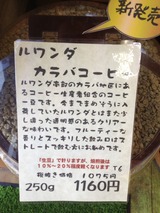 新発売
ルワンダ
カラバコーヒー
ルワンダ南部のカラバ地区に
あるコーヒー生産者組合のコーヒ
ー豆です。今までまめぞうに入
荷していたルワンダとはまた少
し違った透明感のあるクリアー
な味わいです。フルーティーな
香りとスッキリした飲み口はス
トレートで飲むのにお勧めです。
「生豆」で計りますが、焙煎後は
10%～20%程度軽くなります
粗挽き価格 1075円
250g 1160円